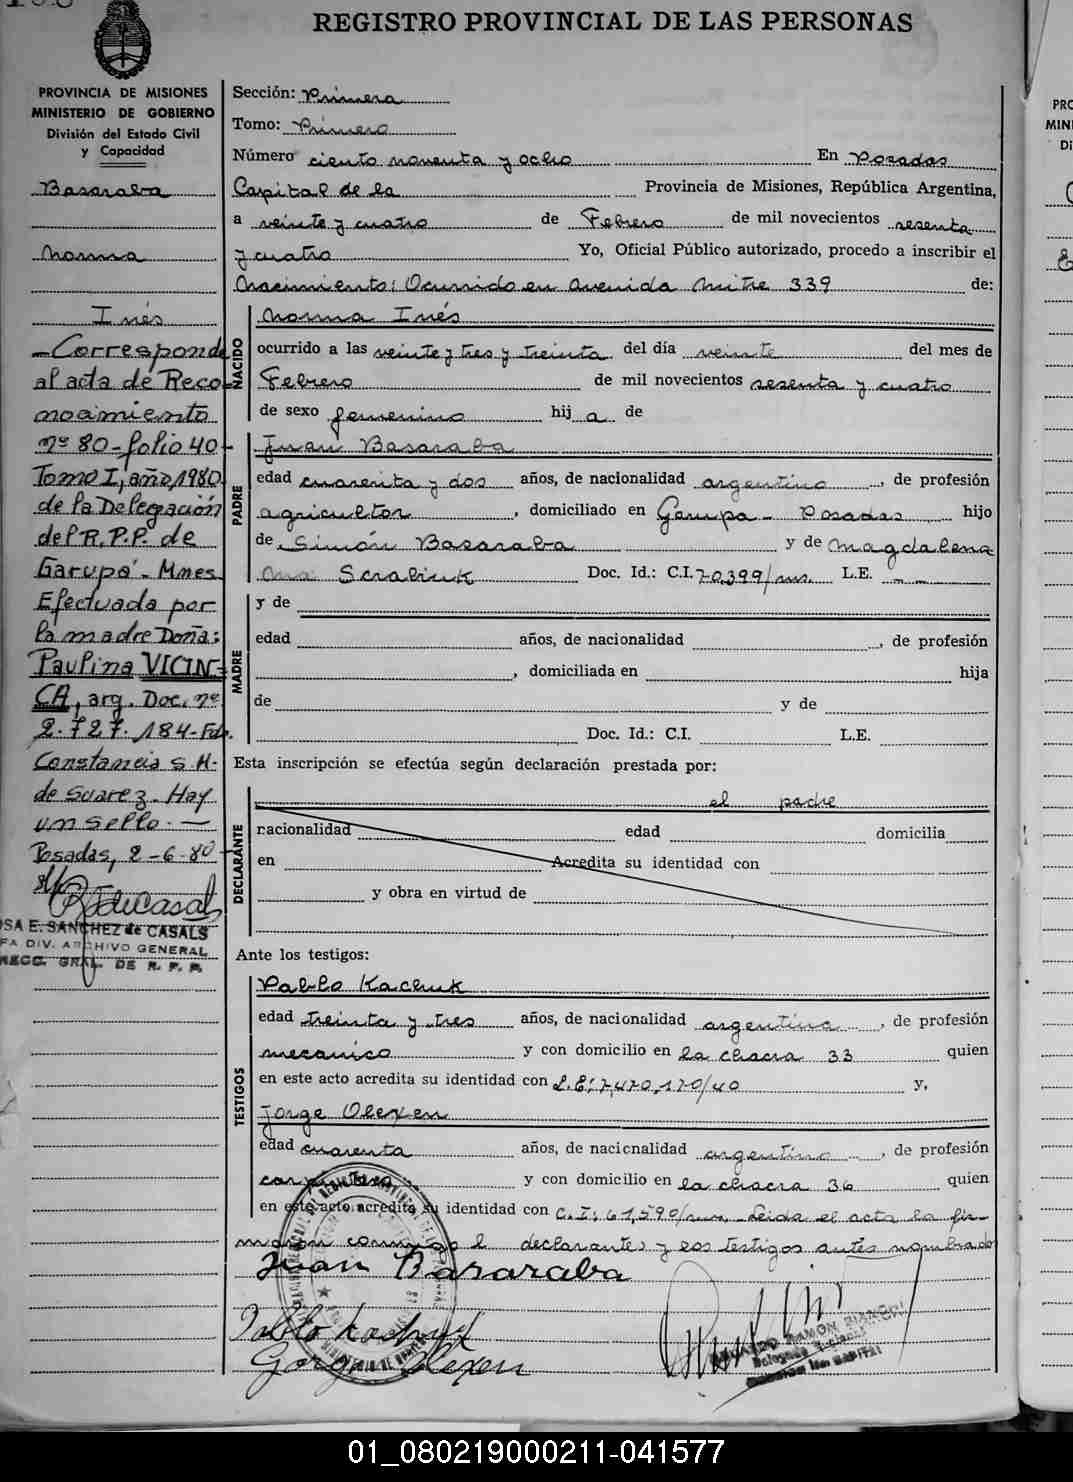 REGISTRO PROVINCIAL DE LAS PERSONAS
PROVINCIA DE MISIONES
MINISTERIO DE GOBIERNO
División del Estado Civil
y Capacidad
Basaraba
Norma
Inés
-Corresponde
al acta de Reco-
nocimiento
nº 80-folio 40-
Tomo I, año 1980
de la Delegación
del R.P.P. de
Garupá-Mnes
Efectuada por
la madre Doña:
Paulina VICIN-
CA, arg. Doc. nº
2.727.184-Fdo.
Constancia S.M.
de Suarez. Hay
un sello.-
Posadas, 2-6-80-
OSA E. SANCHEZ de CASALS
FA DIV. ARCHIVO GENERAL
RECC. GRAL. DE R. P. P.
Sección: Primera
Tomo: Primero
Número ciento noventa y ocho En Posadas
Capital de la Provincia de Misiones, República Argentina,
a veinte y cuatro de Febrero de mil novecientos sesenta
y cuatro Yo, Oficial Público autorizado, procedo a inscribir el
Nacimiento: Ocurrido en Avenida Mitre 339 de:
NACIDO
Norma Inés
ocurrido a las veinte y tres y treinta del día veinte del mes de
Febrero de mil novecientos sesenta y cuatro
de sexo femenino hij a de
PADRE
Juan Basaraba
edad cuarenta y dos años, de nacionalidad argentino, de profesión
agricultor, domiciliado en Garupa - Posadas hijo
de Simón Basaraba y de Magdalena
Doc. Id.: C.I. 70.399/ L.E. --
MADRE
y de
edad años, de nacionalidad , de profesión
, domiciliada en hija
de y de
Doc. Id.: C.I. L.E.
Esta inscripción se efectúa según declaración prestada por:
DECLARANTE
el padre
nacionalidad edad domicilia
en Acredita su identidad con
y obra en virtud de
Ante los testigos:
TESTIGOS
Pablo Kachuk
edad treinta y tres años, de nacionalidad argentina, de profesión
mecanico y con domicilio en la chacra 33 quien
en este acto acredita su identidad con L.E: 7,470,170/40 y,
Jorge Olexen
edad cuarenta años, de nacionalidad argentino, de profesión
carpintero y con domicilio en la chacra 36 quien
en este acto acredita su identidad con C.I: 61,590/ Leida el acta la fir-
maron conmigo el declarante, y los testigos antes nombrados
Juan Basaraba
Pablo Kachuk
Gorge Olexen
RAMON BIANCHI
01_080219000211-041577